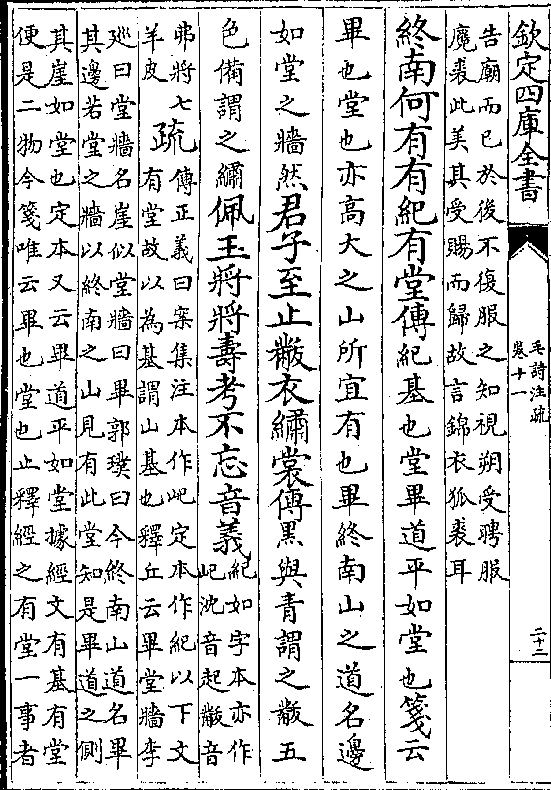 欽定四庫全書
毛詩注疏
卷十一
二十二
告廟而已於後不復服之知視朔受聘服
麛裘此美其受賜而歸故言錦衣狐裘耳
終南何有有紀有堂傳紀基也堂畢道平如堂也箋云
畢也堂也亦高大之山所宜有也畢終南山之道名邊
如堂之牆然君子至止黻衣繡裳傳黑與青謂之黻五
色備謂之繡佩玉將將壽考不忘音義
紀如字本亦作
屺沈音起黻音
弗將七
羊皮
疏
傳正義曰案集注本作屺定本作紀以下文
有堂故以為基謂山基也釋丘云畢堂牆李
廵曰堂牆名崖似堂牆曰畢郭璞曰今終南山道名畢
其邊若堂之牆以終南之山見有此堂知是畢道之側
其崖如堂也定本又云畢道平如堂據經文有基有堂
便是二物今箋唯云畢也堂也止釋經之有堂一事者